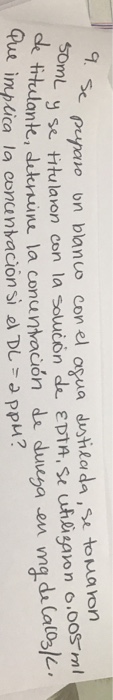 9. Se preparo un blanco con el agua destilada, se tomaron
50mL y se titularon con la solución de EDTA. Se utilizaron 0.005ml
de titulante, determine la concentración de dureza en mg de CaCO3/L.
Que implica la concentración si el DL = 2 ppM?